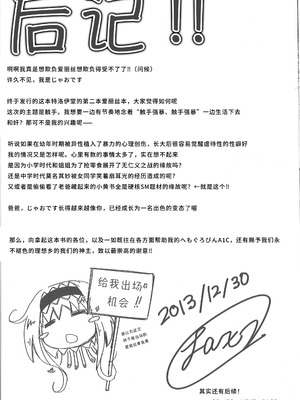 后记!!
啊啊我真是想欺负爱丽丝想欺负得受不了了!!(问候)
许久不见，我是じゃおです
终于发行的这本特洛伊堂的第二本爱丽丝本，大家觉得如何呢
这次的主题是触手。我想要一边有节奏地念着“触手强暴、触手强暴”一边生活下去
和奸？那可不是我的兴趣呢——
听说如果在幼年时期被异性植入了暴力的心理创伤，长大后很容易觉醒虐待性的性癖好
我的情况又是怎样呢。心里有数的事情太多了，实在想不起来
是因为小学时代和姐姐为了抢零食展开了无仁义之战的缘故呢？
还是中学时代莫名其妙被女同学笑着扇耳光的经历造成的呢？
又或者是偷偷看了老爸藏起来的小黄书全是硬核SM题材的缘故呢？←就是这个!!
爸爸，じゃおです长得越来越像你，已经成长为一名出色的变态了喔
那么，向拿起这本书的各位，以及一如既往在各方面帮助我的へもぐろびんA1C，还有赐予我们永
不褪色的理想乡的我们的神主，致以最崇高的谢意!!
给我出场的
机会!!
2013/12/30
其实还有后续！